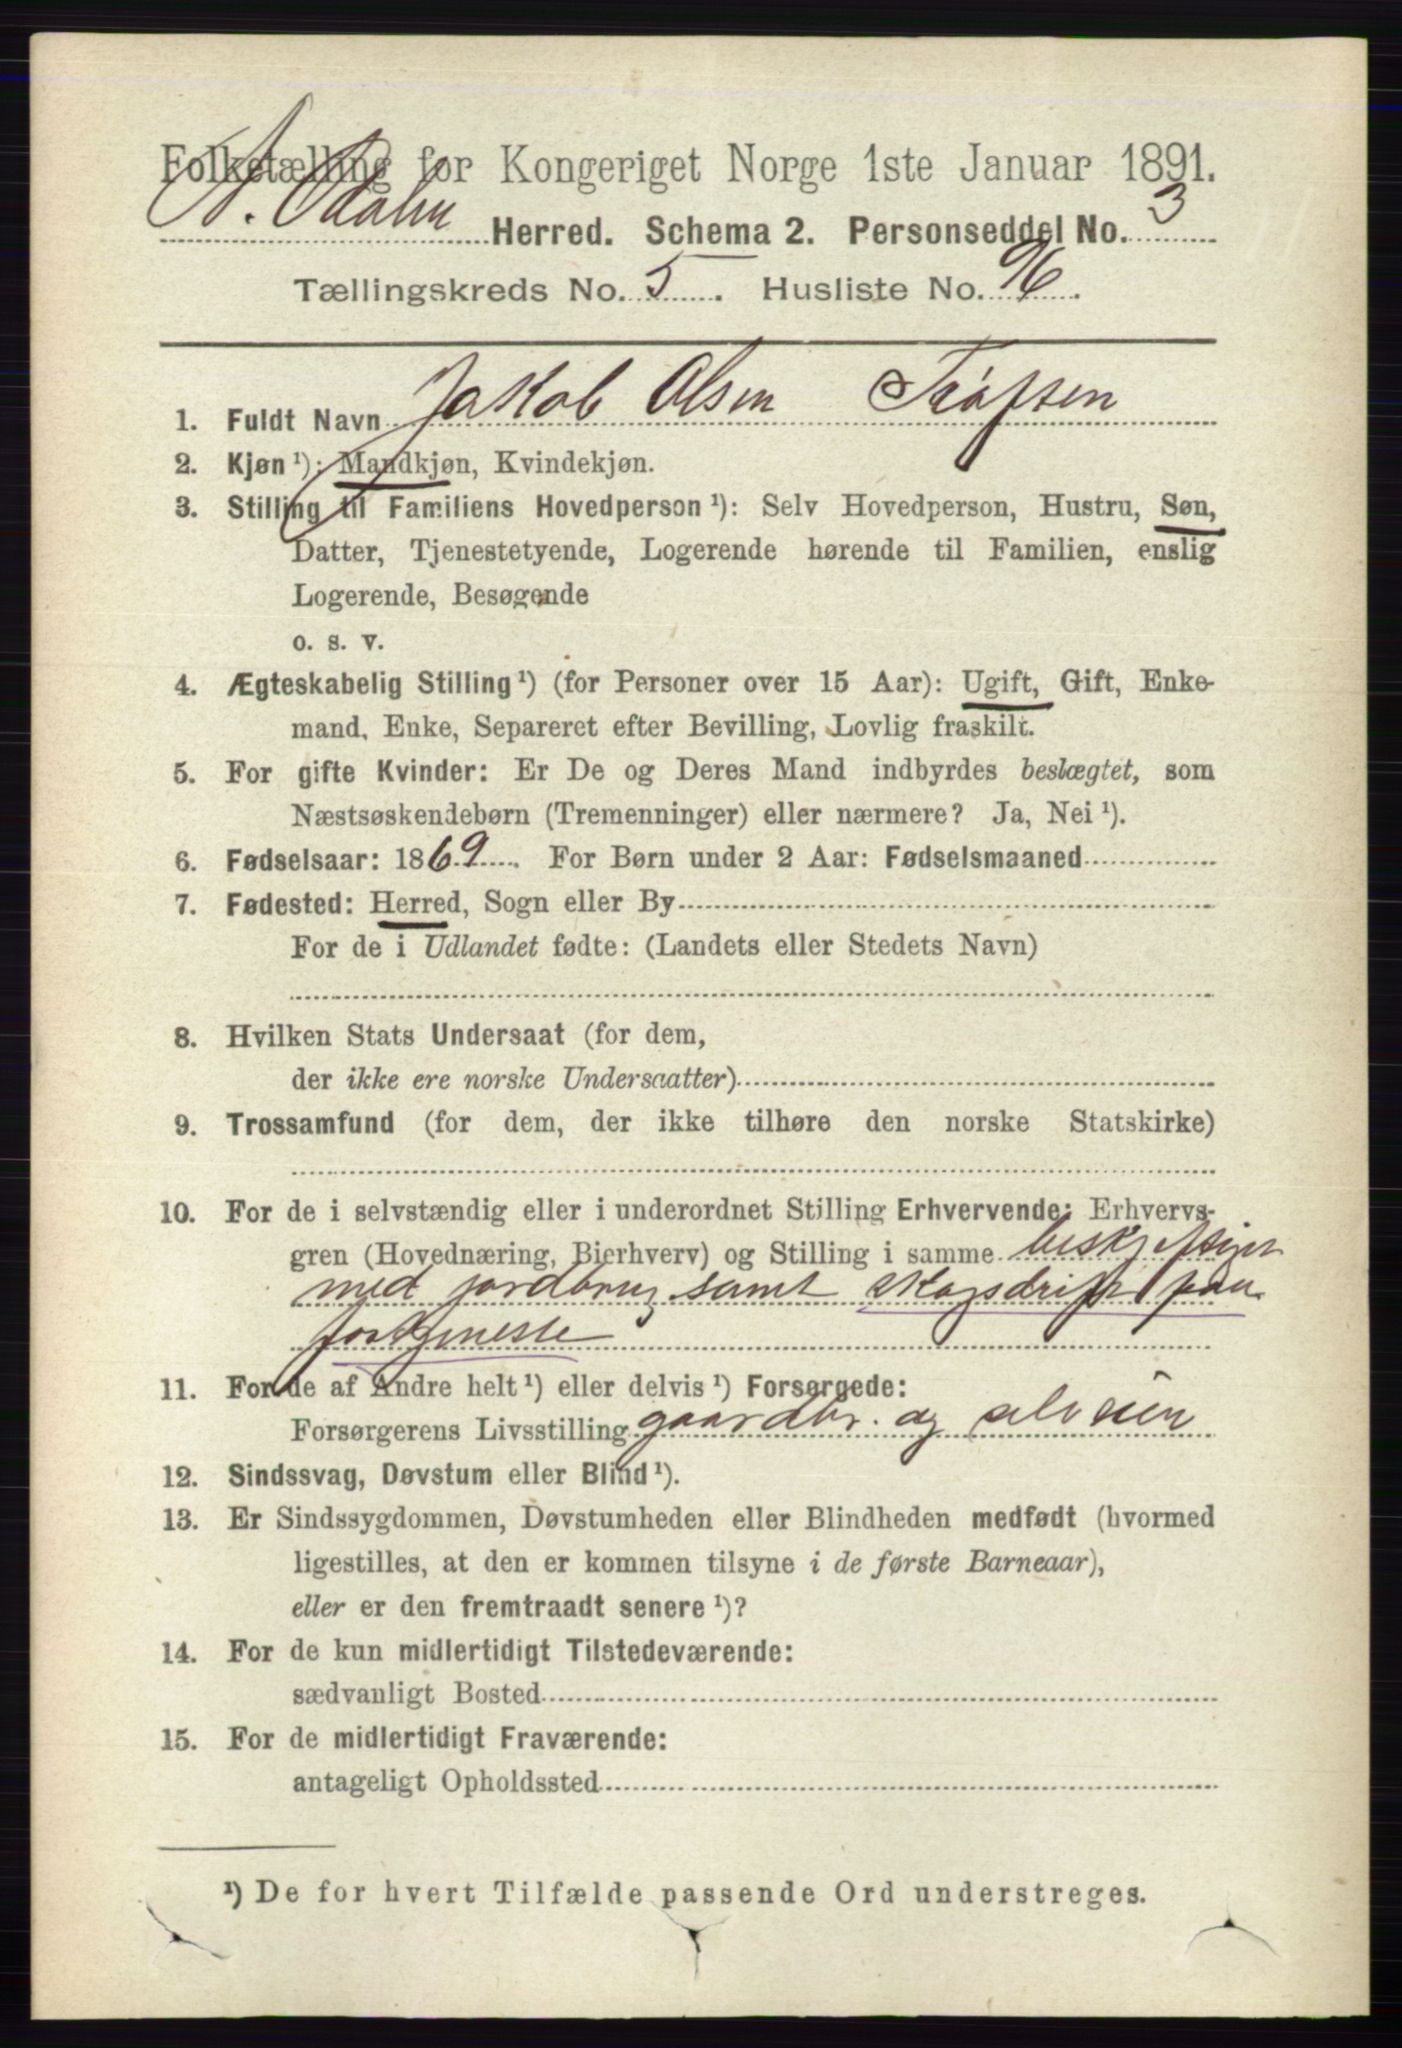 Folketælling for Kongeriget Norge 1ste Januar 1891.
Herred. Schema 2. Personseddel No. 3
Tællingskreds No. 5. Husliste No. 96.
1. Fuldt Navn Jakob Olsen
2. Kjøn ¹): Mandkjøn, Kvindekjøn.
3. Stilling til Familiens Hovedperson ¹): Selv Hovedperson, Hustru, Søn,
Datter, Tjenestetyende, Logerende hørende til Familien, enslig
Logerende, Besøgende
o. s. v.
4. Ægteskabelig Stilling ¹) (for Personer over 15 Aar): Ugift, Gift, Enke-
mand, Enke, Separeret efter Bevilling, Lovlig fraskilt.
5. For gifte Kvinder: Er De og Deres Mand indbyrdes beslægtet, som
Næstsøskendebørn (Tremenninger) eller nærmere? Ja, Nei ¹).
6. Fødselsaar: 1869. For Børn under 2 Aar: Fødselsmaaned
7. Fødested: Herred, Sogn eller By
For de i Udlandet fødte: (Landets eller Stedets Navn)
8. Hvilken Stats Undersaat (for dem,
der ikke ere norske Undersaatter)
9. Trossamfund (for dem, der ikke tilhøre den norske Statskirke)
10. For de i selvstændig eller i underordnet Stilling Erhvervende: Erhvervs-
gren (Hovednæring, Bierhverv) og Stilling i samme beskjeftiget
med jordbrug samt skogsdrift paa
fortjeneste
11. For de af Andre helt ¹) eller delvis ¹) Forsørgede:
Forsørgerens Livsstilling gaardbr. og selveier
12. Sindssvag, Døvstum eller Blind ¹).
13. Er Sindssygdommen, Døvstumheden eller Blindheden medfødt (hvormed
ligestilles, at den er kommen tilsyne i de første Barneaar),
eller er den fremtraadt senere ¹)?
14. For de kun midlertidigt Tilstedeværende:
sædvanligt Bosted
15. For de midlertidigt Fraværende:
antageligt Opholdssted
¹) De for hvert Tilfælde passende Ord understreges.